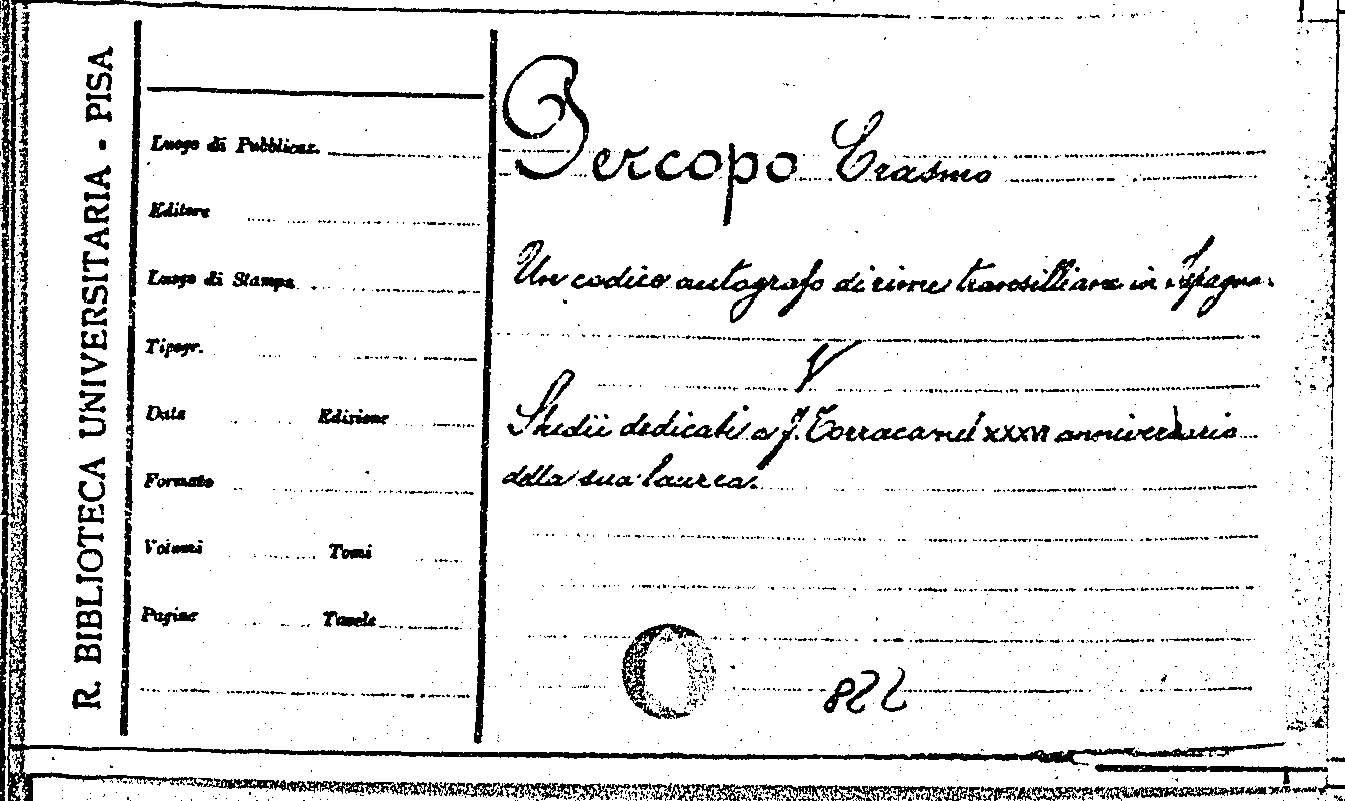 R. BIBLIOTECA UNIVERSITARIA - PISA
Luogo di Pubblicaz.
Editore
Luogo di Stampa
Tipogr.
Data Edizione
Formato
Volumi Tomi
Pagine Tavole
Percopo Erasmo
Un codice autografo di rime tansilliane in Ispagna.
V
Studii dedicati a F. Torraca nel XXXVI anniversario
della sua laurea.
822